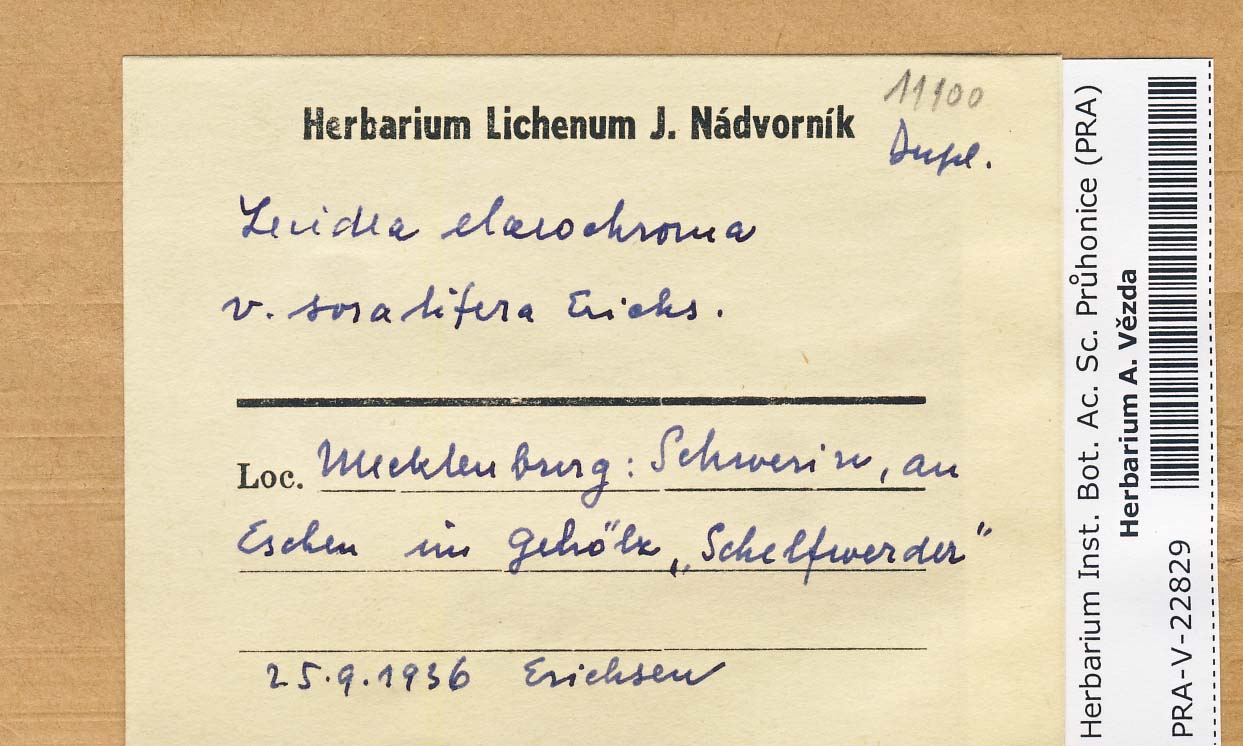 11100
Herbarium Lichenum J. Nádvorník
Dupl.
Lecidea elaeochroma
v. soralifera Erichs.
Loc. Mecklenburg: Schwerin, an
Eschen im Gehölz „Schelfwerder"
25.9.1936 Erichsen
Herbarium Inst. Bot. Ac. Sc. Průhonice (PRA)
Herbarium A. Vězda
PRA-V-22829